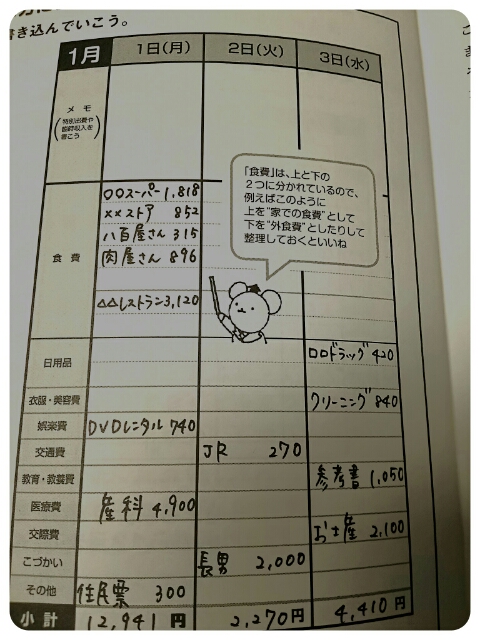 き込んでいこう。
1月 1日(月) 2日(火) 3日(水)
メモ
(特別出費や
臨時収入を
書こう)
「食費」は、上と下の
2つに分かれているので、
例えばこのように
上を"家での食費"として
下を"外食費"としたりして
整理しておくといいね
食費
○○スーパー 1,818
××ストア 852
八百屋さん 315
肉屋さん 896
△△レストラン 3,120
日用品 □□ドラッグ 420
衣服・美容費 クリーニング 840
娯楽費 DVDレンタル 740
交通費 JR 270
教育・教養費 参考書 1,050
医療費 産科 4,900
交際費 お土産 2,100
こづかい 長男 2,000
その他 住民票 300
小計 12,941円 2,270円 4,410円